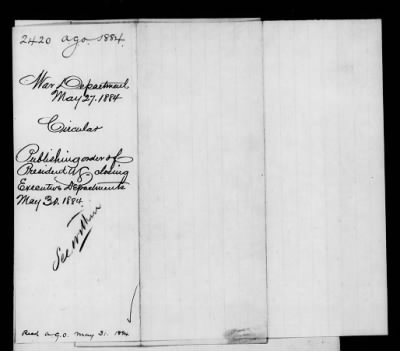 2420 ago. 1884.
War Department
May 27. 1884
Circular
Publishing order of
President US closing
Executive Departments
May 30. 1884.
See within
Recd A.G.O. May 31. 1884